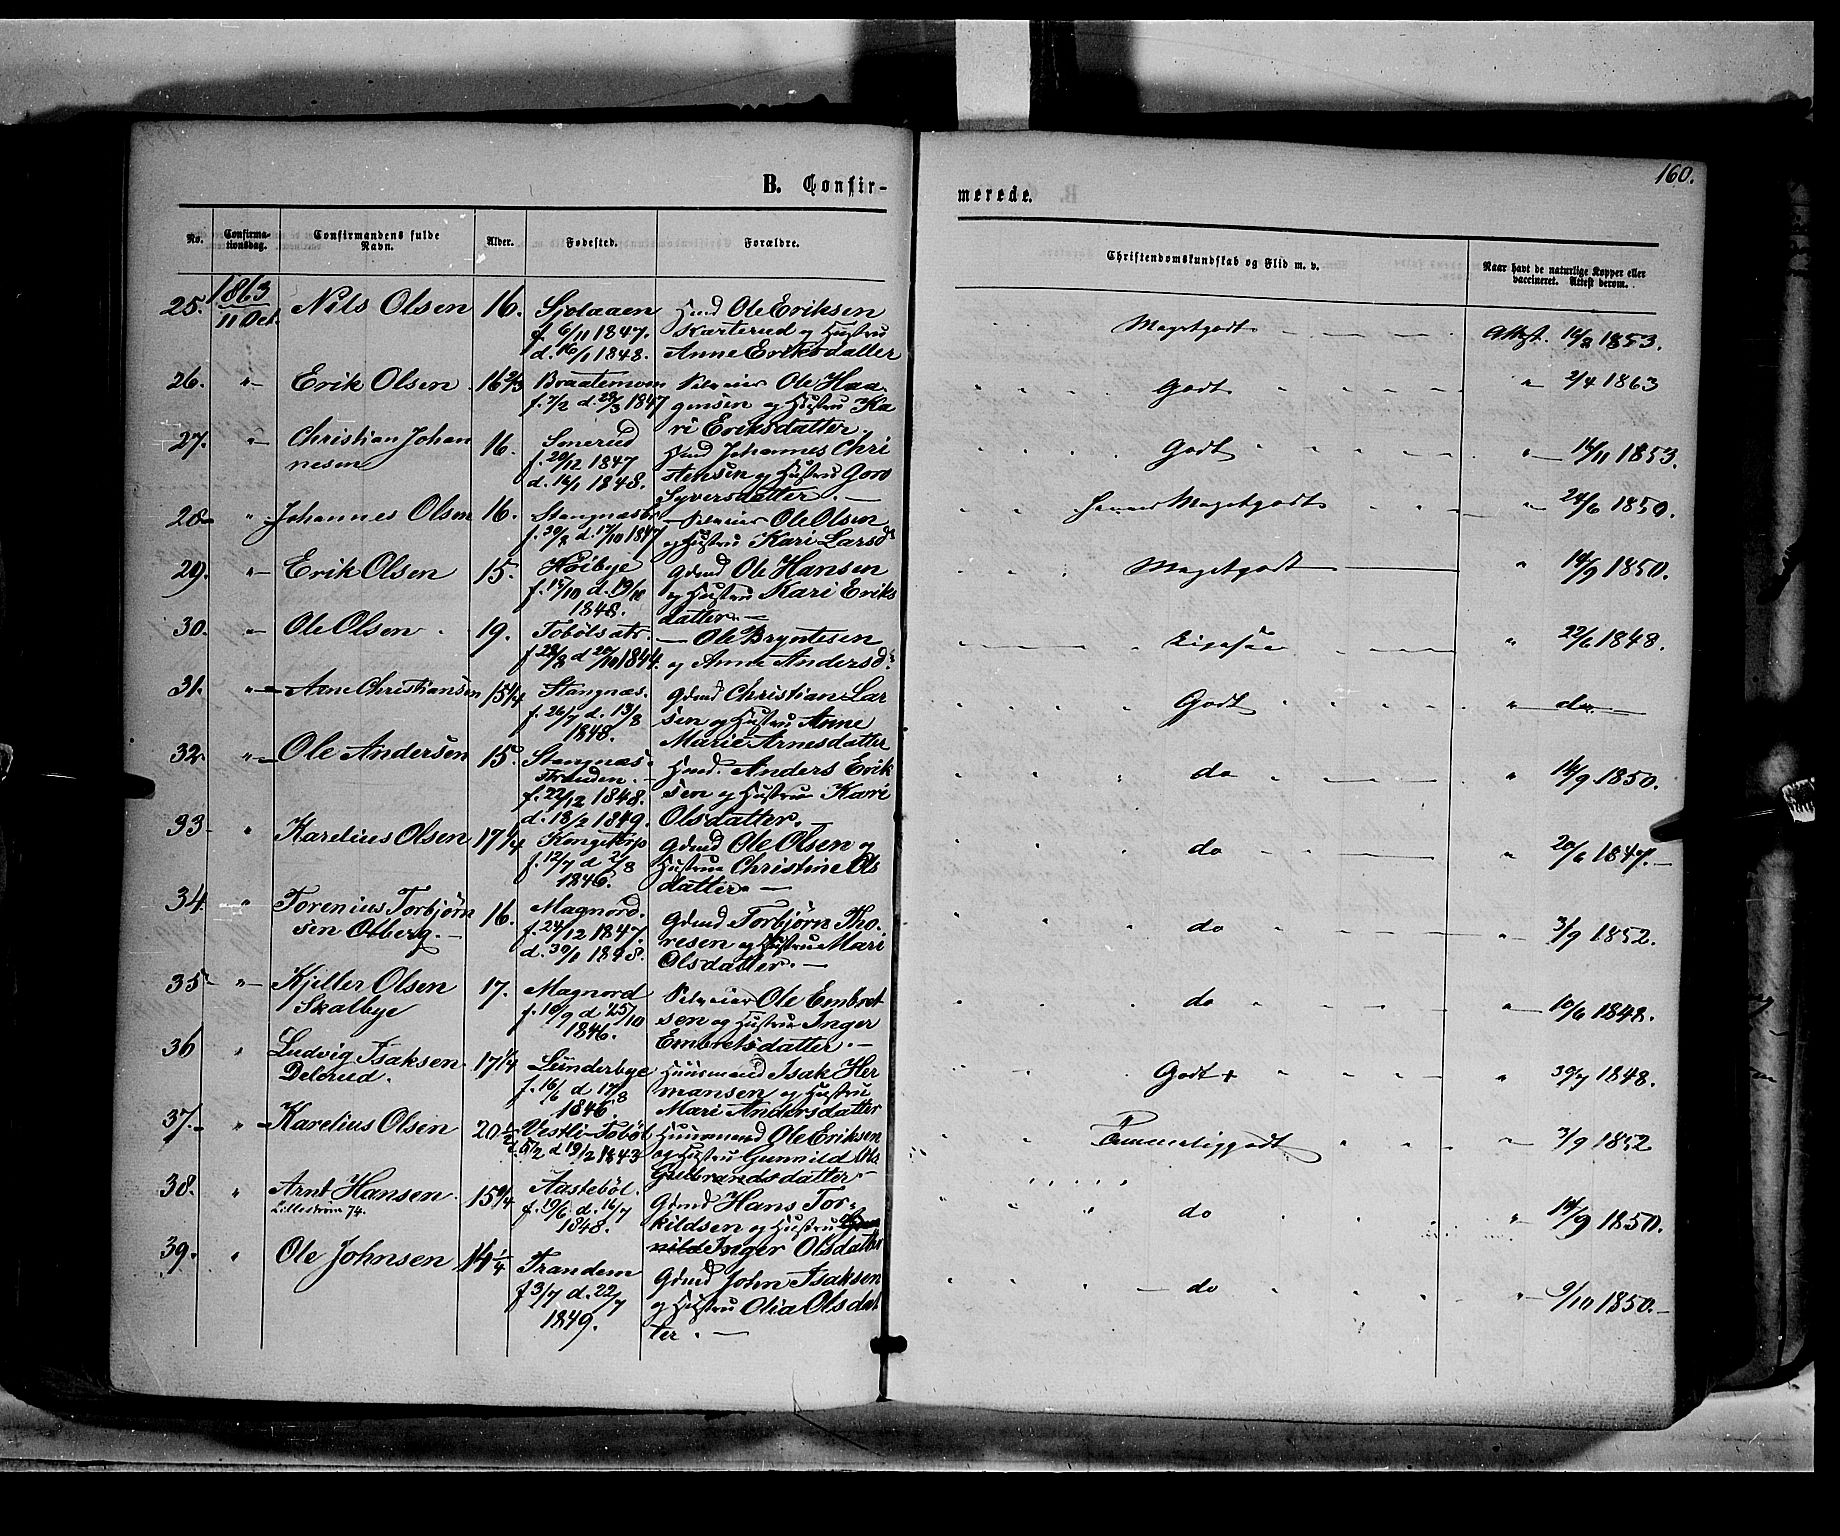 160.
B. Confir-
merede.
No.
Confirma-
tionsdag.
Confirmandens fulde
Navn.
Alder.
Fødested.
Forældre.
Christendomskundskab og Flid m. v.
Naar havt de naturlige Kopper eller
vaccineret. Attest derom.
1863
11 Oct.
25. Nils Olsen 16.
f. 6/11 1847.
d. 16/1 1848.
Ole Eriksen
og Hustru
Anne Eriksdatter
Megetgodt
Attest. 1853.
26. " Erik Olsen 16 2/3 Braatemoen
f. 7/2 d. 28/3 1847
Ole Haa
gensen og Hustru Ka
ri Eriksdatter.
Godt
" 2/4 1863
27. " Christian Johan
nesen 16. Smerud
f. 20/12 1847
d. 16/1 1848.
Johannes Chri
stensen og Hustru Goro
Syversdatter. —
Godt
" 16/11 1853.
28 " Johannes Olsen 16.
f. 30/8 d. 17/10 1847
Ole Olsen
og Hustru Kari Larsd
Megetgodt
" 24/6 1850.
29. " Erik Olsen 15. Høibye
f. 15/10 d. 19/11
1848.
Gdmd Ole Hansen
og Hustru Kari Eriks
datter. —
Megetgodt
" 14/9 1850.
30. " Ole Olsen 19.
f. 28/8 d 20/10 1844.
— Ole Bryntesen
og Anne Andersd:
" 22/6 1848.
31. " Arne Christiansen 15 1/4 Stangnæs.
f. 26/7 d. 13/8
1848.
Gdmd Christian Lar
sen og Hustru Anne
Marie Arnesdatter
Godt
" do.
32. " Ole Andersen 15. Stangnæs-
stranden. —
f. 22/12 1848.
d. 18/2 1849.
Anders Erik
sen og Hustru Kari
Olsdatter. —
do
" 14/9 1850.
33 " Karelius Olsen 17 1/4 Kongstorp
f. 12/7 d 2/8
1846.
Gdmd Ole Olsen og
Hustru Christine Ols
datter. —
do
" 20/6 1847. —
34. " Torenius Torbjørn
sen Olberg. — 16. Magnord.
f. 24/12 1847.
d. 30/1 1848.
Gdmd Torbjørn Tho-
resen og Hustru Mari
Olsdatter. —
do
" 3/9 1852.
35 " Kjiller Olsen
Skalbye 17. Magnord
f. 10/9 d 25/10
1846.
Ole Embret
sen og Hustru Inger
Embretsdatter. —
do
" 10/6 1848.
36 " Ludvig Isaksen
Delerud. 17 1/4 Lunderbye
f. 16/6 d 17/8
1846.
Huusmand Isak Her
mansen og Hustru
Mari Andersdatter
Godt+
" 30/7 1848.
37. " Karelius Olsen 20 1/2 Vestli-Tobøl
5/2 d 19/2 1843
Huusmand Ole Eriksen
og Hustru Gunnild
Gulbrandsdatter
Temmeliggodt
" 3/9 1852
38. " Arnt Hansen.
Lillestrøm 74. 15 1/4 Aastebøl.
f. 19/6 d. 16/7
1848.
Gdmd Hans Tor-
kildsen og Hustru
Inger Olsdatter
do
" 14/9 1850.
39. " Ole Johnsen 14 1/4 Trandem
f 3/7 d. 22/7
1849.
Gdmd John Isaksen
og Hustru Olia Olsdat
ter. —
do
" 9/10 1850. —